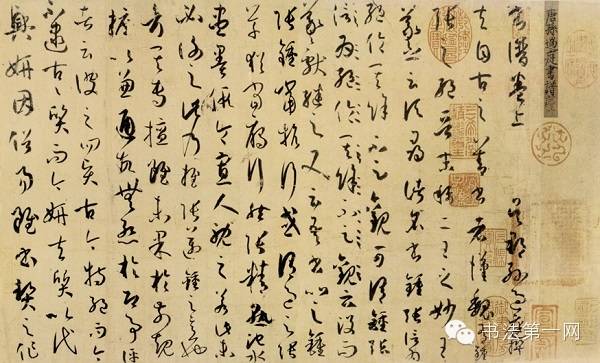 唐孫過庭書譜
書譜卷上 吳郡孫過庭撰
夫自古之善書者漢魏有鍾
張之絕晉末稱二王之妙王
羲之云頃尋諸名書鍾張信為
絕倫其餘不足觀可謂鍾張
云沒而
羲獻繼之又云吾書比之鍾
張鍾當抗行或謂過之張
草猶當鴈行然張精熟池水
盡墨假令寡人耽之若此未
必謝之此乃推張邁鍾之意也
考其專擅雖未果於前規
摭以兼通故無慚於即事評
者云彼之四賢古今特絕而今
不逮古古質而今妍夫質以代
興妍因俗易雖書契之作
书法第一网